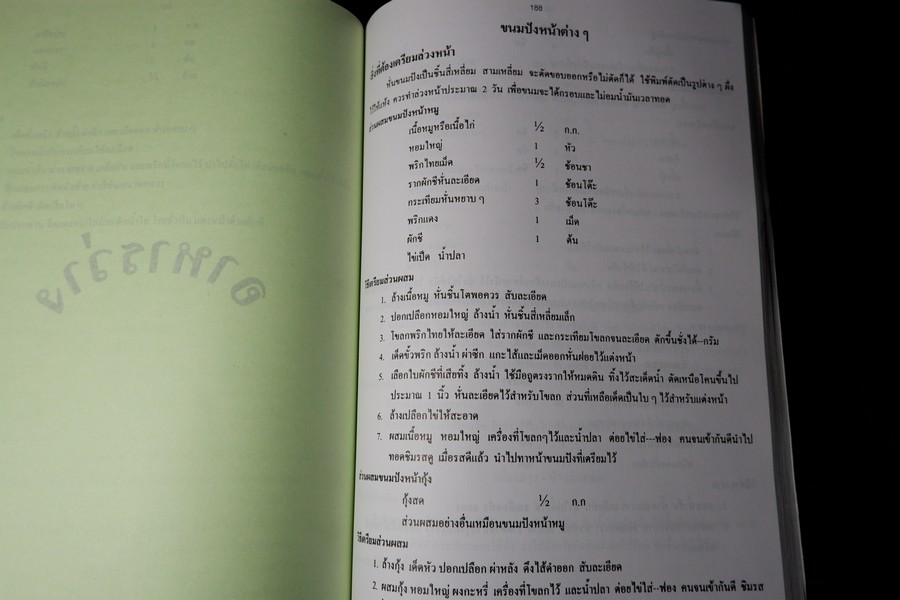 188
ขนมปังหน้าต่าง ๆ
สิ่งที่ต้องเตรียมล่วงหน้า
หั่นขนมปังเป็นชิ้นสี่เหลี่ยม สามเหลี่ยม จะตัดขอบออกหรือไม่ตัดก็ได้ ใช้พิมพ์ตัดเป็นรูปต่าง ๆ ผึ่ง
ไว้ให้แห้ง ควรทำล่วงหน้าประมาณ 2 วัน เพื่อขนมจะได้กรอบและไม่อมน้ำมันเวลาทอด
ส่วนผสมขนมปังหน้าหมู
เนื้อหมูหรือเนื้อไก่ ½ ก.ก.
หอมใหญ่ 1 หัว
พริกไทยเม็ด ½ ช้อนชา
รากผักชีหั่นละเอียด 1 ช้อนโต๊ะ
กระเทียมหั่นหยาบ ๆ 3 ช้อนโต๊ะ
พริกแดง 1 เม็ด
ผักชี 1 ต้น
ไข่เป็ด น้ำปลา
วิธีเตรียมส่วนผสม
1. ล้างเนื้อหมู หั่นชิ้นโตพอควร สับละเอียด
2. ปอกเปลือกหอมใหญ่ ล้างน้ำ หั่นชิ้นสี่เหลี่ยมเล็ก
3. โขลกพริกไทยให้ละเอียด ใส่รากผักชี และกระเทียมโขลกจนละเอียด ตักขึ้นชั่งได้--กรัม
4. เด็ดขั้วพริก ล้างน้ำ ผ่าซีก แกะไส้และเม็ดออกหั่นฝอยไว้แต่งหน้า
5. เลือกใบผักชีที่เสียทิ้ง ล้างน้ำ ใช้มือถูตรงรากให้หมดดิน ทิ้งไว้สะเด็ดน้ำ ตัดเหนือโคนขึ้นไป
ประมาณ 1 นิ้ว หั่นละเอียดไว้สำหรับโขลก ส่วนที่เหลือเด็ดเป็นใบ ๆ ไว้สำหรับแต่งหน้า
6. ล้างเปลือกไข่ให้สะอาด
7. ผสมเนื้อหมู หอมใหญ่ เครื่องที่โขลกๆไว้และน้ำปลา ต่อยไข่ใส่---ฟอง คนจนเข้ากันดีนำไป
ทอดชิมรสดู เมื่อรสดีแล้ว นำไปทาหน้าขนมปังที่เตรียมไว้
ส่วนผสมขนมปังหน้ากุ้ง
กุ้งสด ½ ก.ก
ส่วนผสมอย่างอื่นเหมือนขนมปังหน้าหมู
วิธีเตรียมส่วนผสม
1. ล้างกุ้ง เด็ดหัว ปอกเปลือก ผ่าหลัง ดึงไส้ดำออก สับละเอียด
2. ผสมกุ้ง หอมใหญ่ ผงกะหรี่ เครื่องที่โขลกไว้ และน้ำปลา ต่อยไข่ใส่--ฟอง คนจนเข้ากันดี ชิมรส
อาหารว่าง